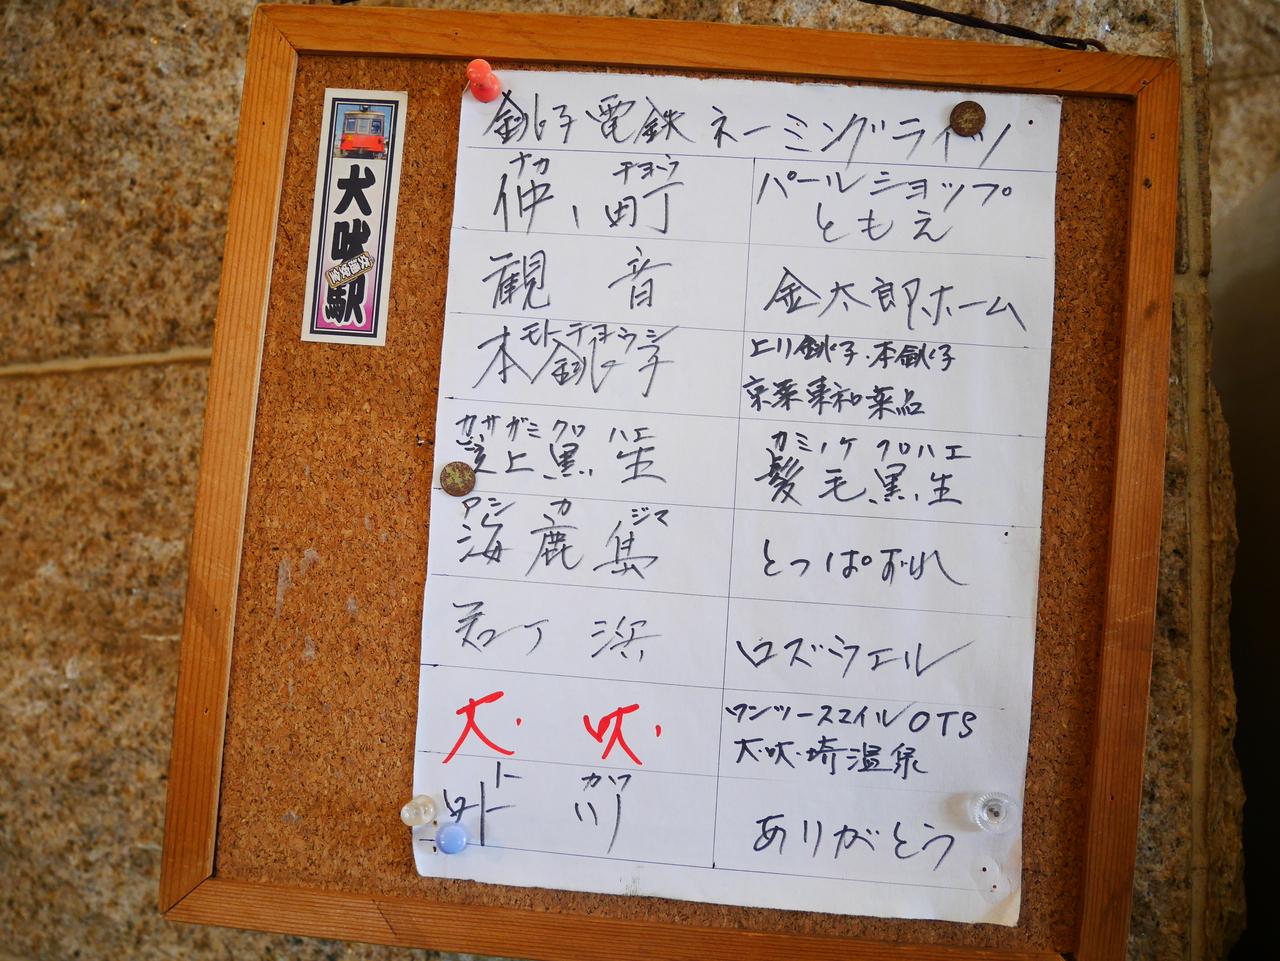 犬吠駅
銚子電鉄ネーミングライツ
ナカ チョウ
仲ノ町
パールショップ
ともえ
観音
金太郎ホーム
モトチョウシ
本銚子
上り銚子・本銚子
京葉東和薬品
カサガミクロハエ
笠上黒生
カミノケクロハエ
髪毛黒生
アシカジマ
海鹿島
とっぱずれ
君ヶ浜
ロズウェル
犬吠
ワンツースマイルOTS
犬吠埼温泉
トカワ
外川
ありがとう